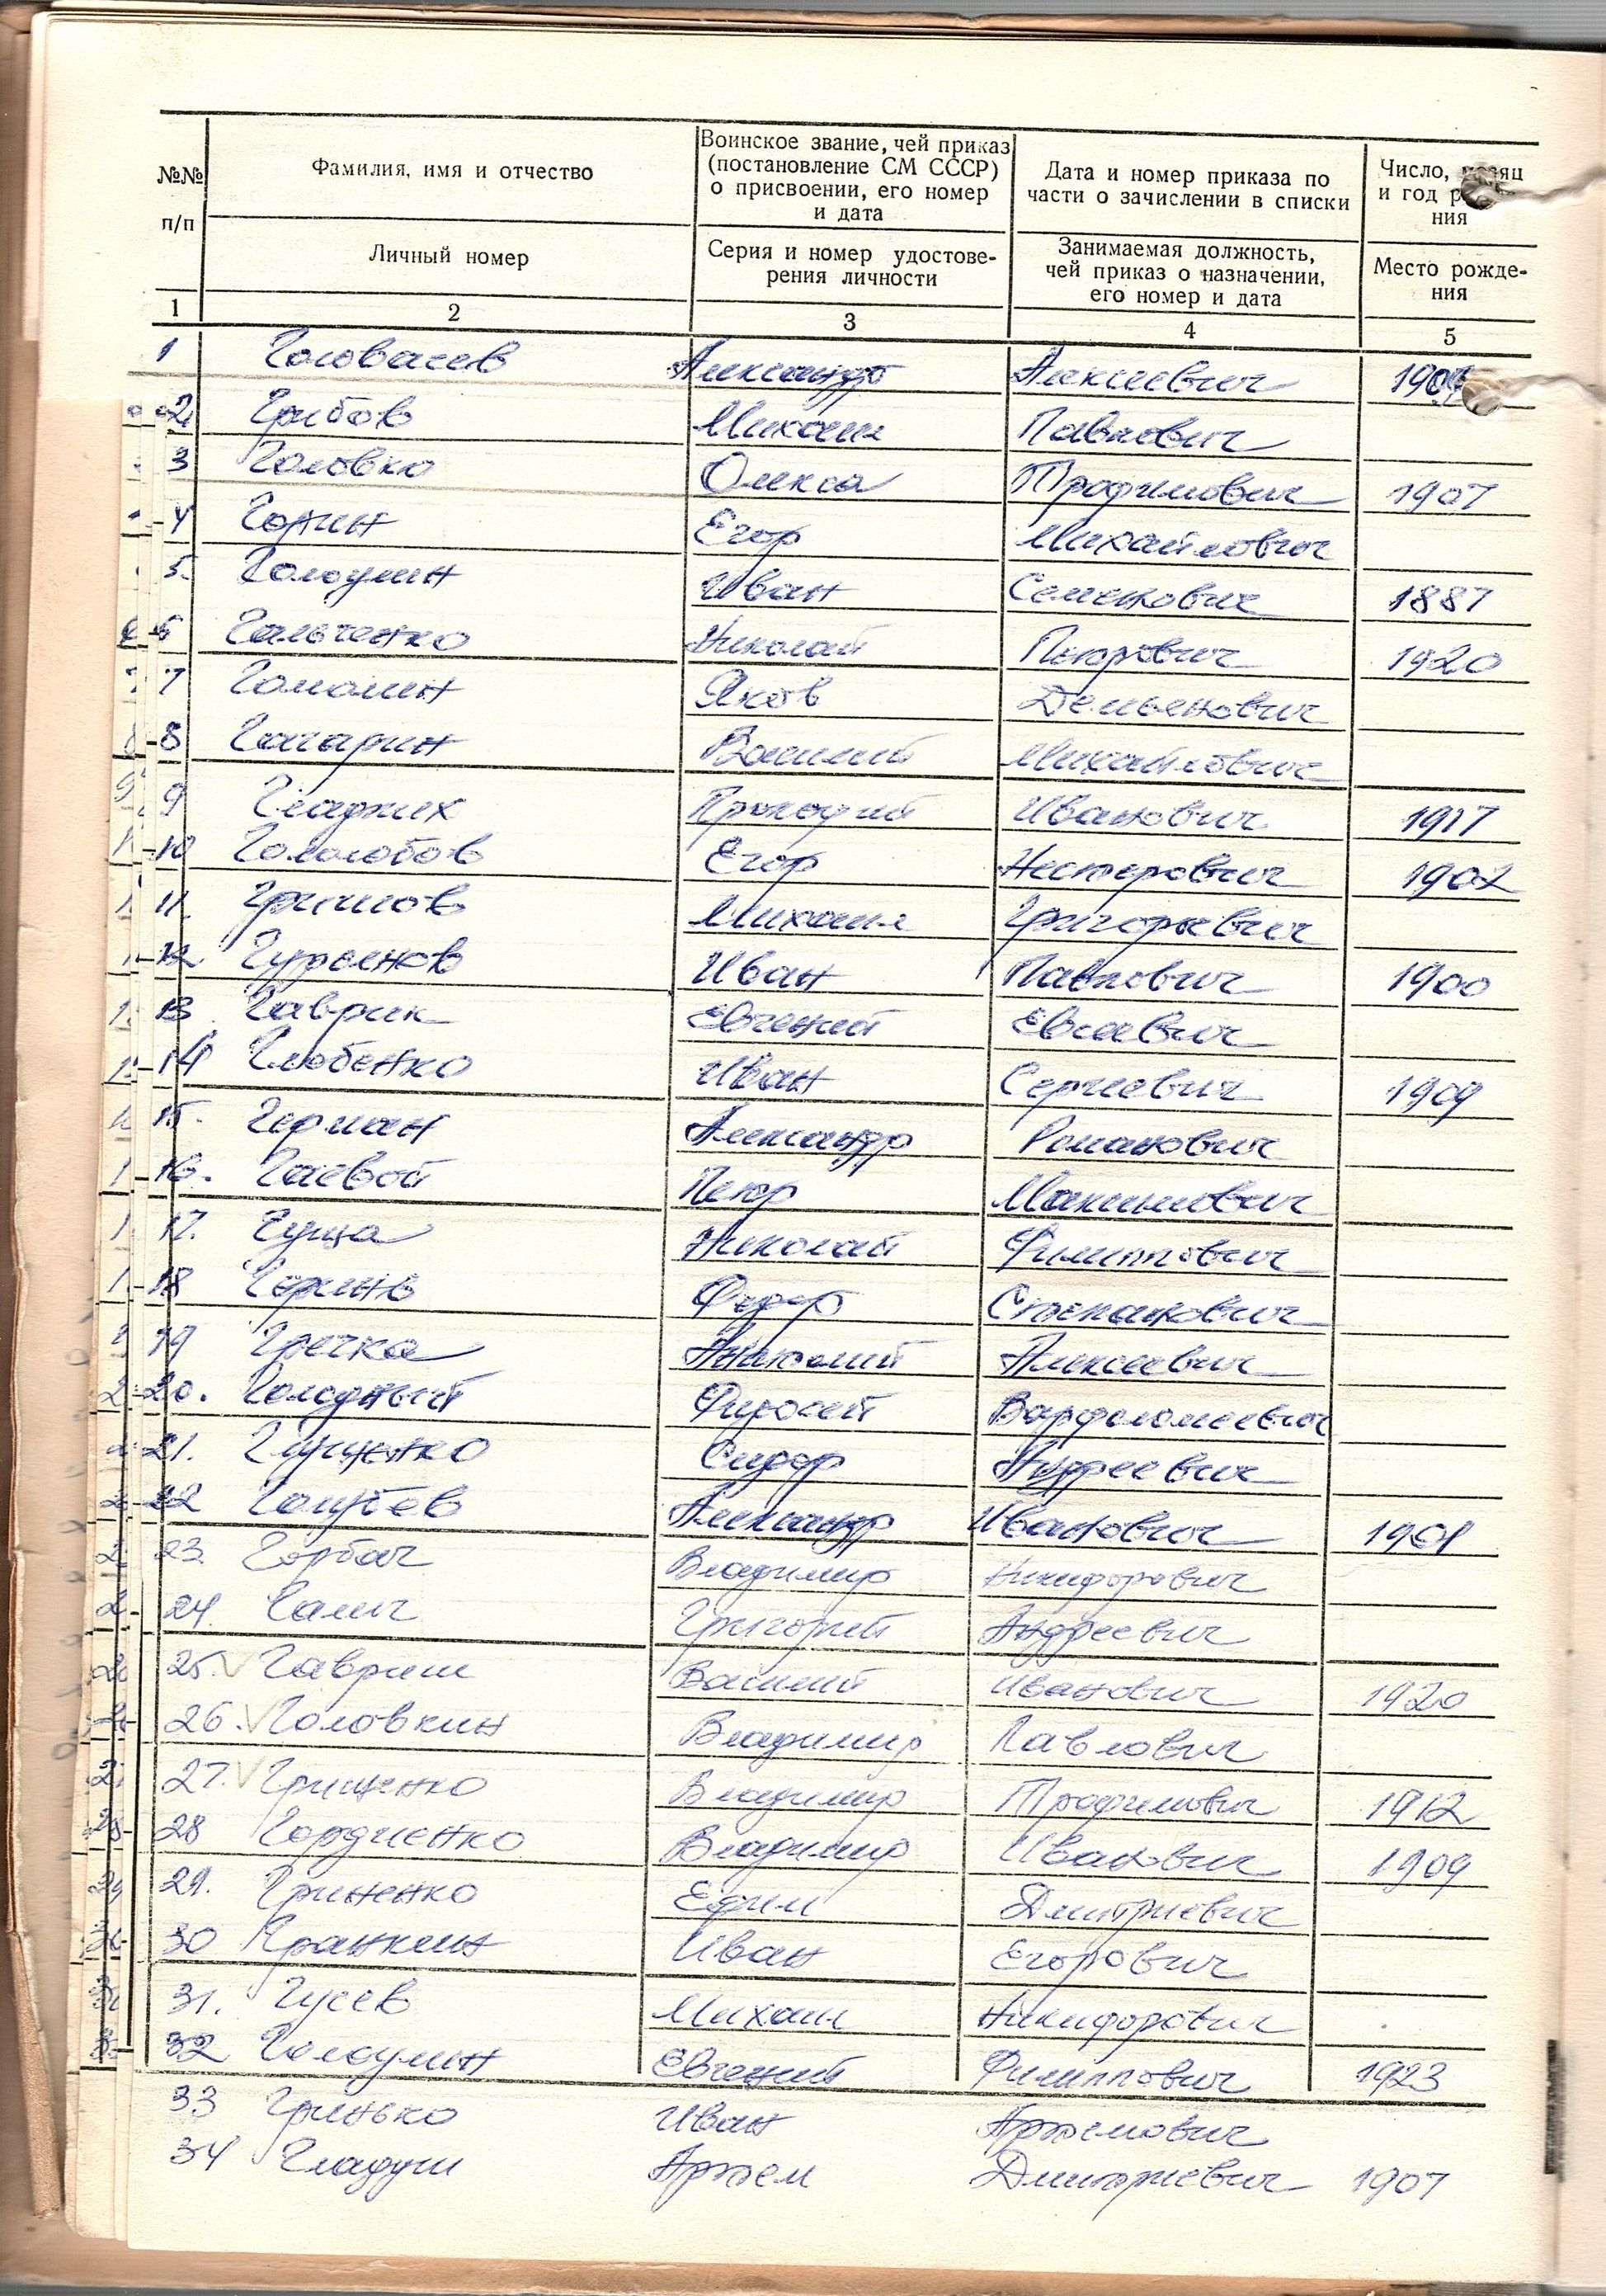 №№ п/п
Фамилия, имя и отчество
Воинское звание, чей приказ (постановление СМ СССР) о присвоении, его номер и дата
Дата и номер приказа по части о зачислении в списки
Число,
и год
ния
Личный номер
Серия и номер удостове-
рения личности
Занимаемая должность,
чей приказ о назначении,
его номер и дата
Место рожде-
ния
1 2 3 4 5
1 Александр Алексеевич
2 Грибов Михаил Павлович
3 Головко Олекса Трофимович 1907
4 Егор Михайлович
5. Голоулин Иван Семенович 1887
6 Гальченко Николай Петрович 1920
7 Яков Демьенович
8 Гагарин Василий Михайлович
9 Гладких Прокофий Иванович 1917
10 Гололобов Егор Нестерович 1902
11. Михаил Григорьевич
12 Гурьянов Иван Павлович 1900
13 Гаврик Евгений Евсеевич
14 Глюбенко Иван Сергеевич 1909
15. Герман Александр Романович
16. Гаевой Петр Максимович
17. Гуща Николай Филиппович
18 Федор Степанович
19 Гречка Анатолий Алексеевич
20. Голодный Фирсей Варфоломеевич
21. Грищенко Сидор Андреевич
22 Голубев Александр Иванович 1901
23. Горбач Владимир Никифорович
24. Галич Григорий Андреевич
25. Гавриш Василий Иванович 1920
26. Головкин Владимир Павлович
27. Грищенко Владимир Трофимович 1912
28 Гордиенко Владимир Иванович 1909
29. Гриненко Ефим Дмитриевич
30 Гранкин Иван Егорович
31. Гусев Михаил Никифорович
32 Голоулин Евгений Филиппович 1923
33 Гринько Иван Артемович
34 Гладуш Артем Дмитриевич 1907